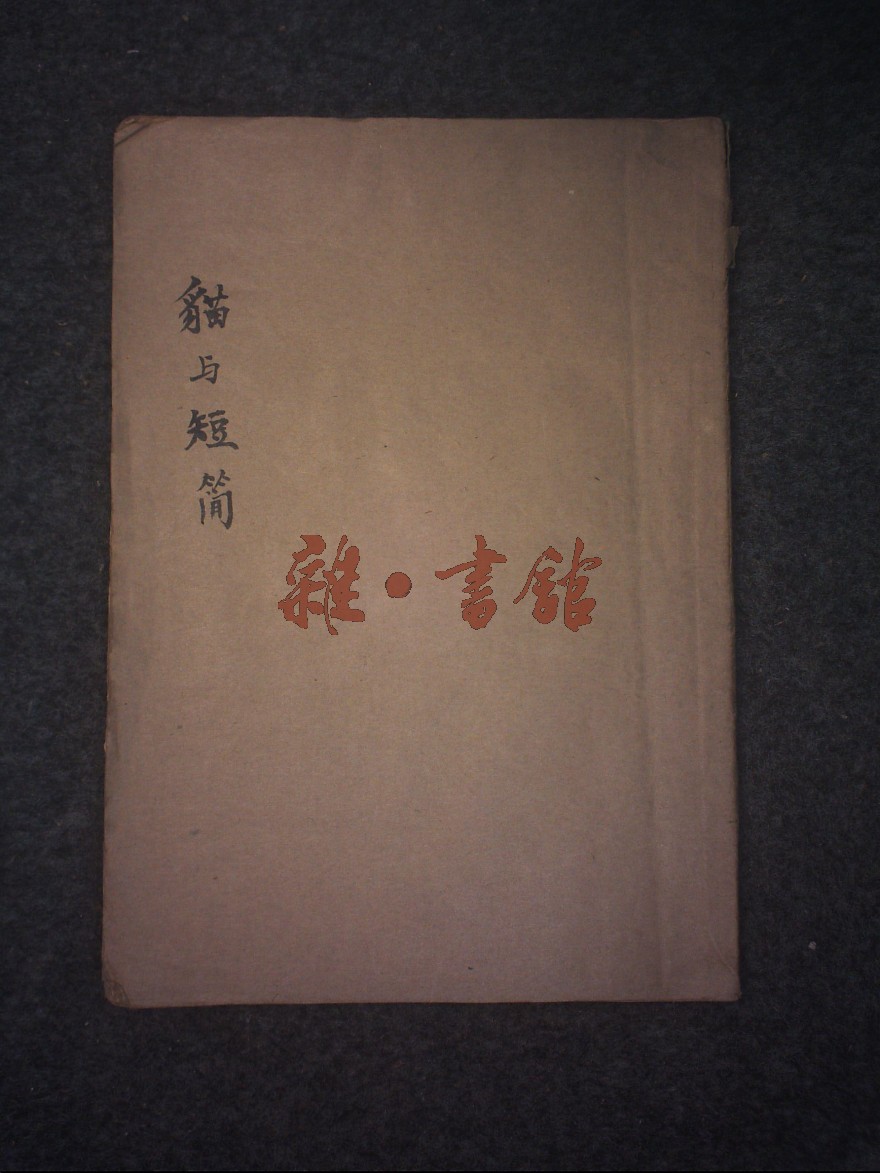 貓与短简
雜·書館